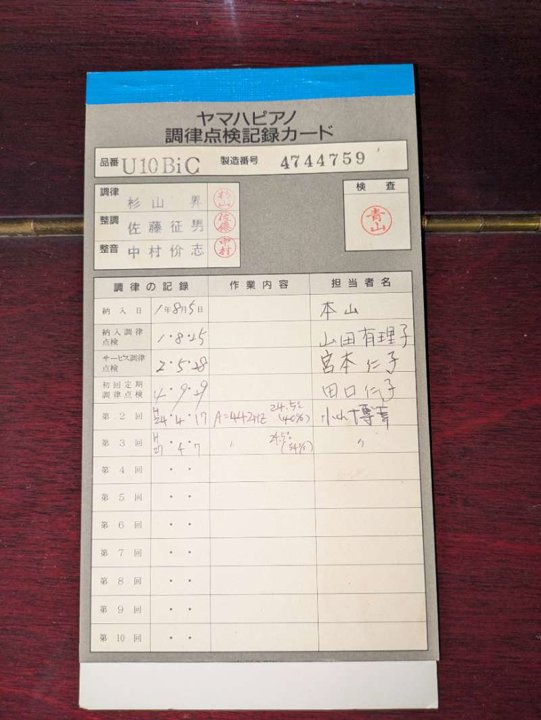 ヤマハピアノ
調律点検記録カード
品番 U10BiC 製造番号 4744759
調律 杉山 杉山
検査 青山
整調 佐藤征男 佐藤
整音 中村价志 中村
調律の記録 作業内容 担当者名
納入日 1年8月5日 本山
納入調律点検 1・8・25 山田有理子
サービス調律点検 2・5・28 宮本仁子
初回定期調律点検 4・9・29 田口仁子
第2回 H24・4・17 A=442HZ 24.5℃ (40%)
第3回 H27・4・7 〃 24.5℃ (54%) 〃
第4回 ・ ・
第5回 ・ ・
第6回 ・ ・
第7回 ・ ・
第8回 ・ ・
第9回 ・ ・
第10回 ・ ・